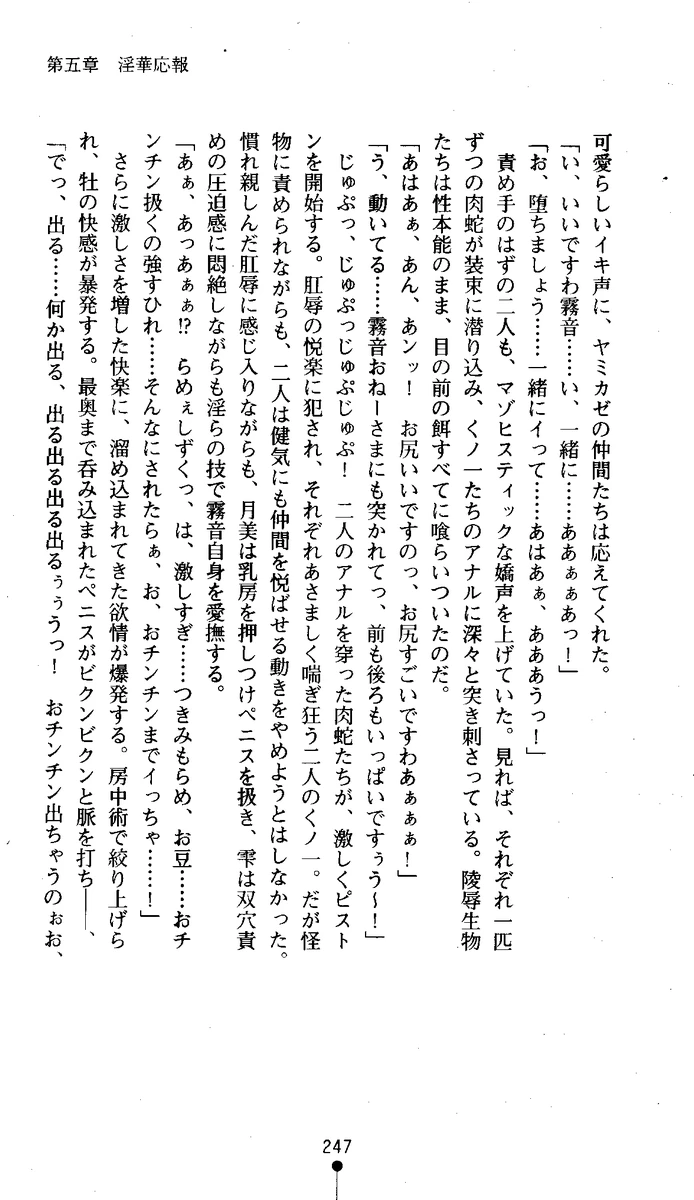 第五章　淫華応報
可愛らしいイキ声に、ヤミカゼの仲間たちは応えてくれた。
「い、いいですわ霧音……い、一緒に……ああぁぁあっ！」
「お、堕ちましょう……一緒にイって……あはあぁ、あああうっ！」
　責め手のはずの二人も、マゾヒスティックな嬌声を上げていた。見れば、それぞれ一匹
ずつの肉蛇が装束に潜り込み、くノ一たちのアナルに深々と突き刺さっている。陵辱生物
たちは性本能のまま、目の前の餌すべてに喰らいついたのだ。
「あはあぁ、あん、あンッ！　お尻いいですのっ、お尻すごいですわあぁぁぁ！」
「う、動いてる……霧音おねーさまにも突かれてっ、前も後ろもいっぱいですぅう～！」
　じゅぷっ、じゅぷっじゅぷじゅぷ！　二人のアナルを穿った肉蛇たちが、激しくピスト
ンを開始する。肛辱の悦楽に犯され、それぞれあさましく喘ぎ狂う二人のくノ一。だが怪
物に責められながらも、二人は健気にも仲間を悦ばせる動きをやめようとはしなかった。
慣れ親しんだ肛辱に感じ入りながらも、月美は乳房を押しつけペニスを扱き、雫は双穴責
めの圧迫感に悶絶しながらも淫らの技で霧音自身を愛撫する。
「あぁ、あっあぁぁ!?　らめぇしずくっ、は、激しすぎ……つきみもらめ、お豆……おチ
ンチン扱くの強すひれ……そんなにされたらぁ、お、おチンチンまでイっちゃ……！」
　さらに激しさを増した快楽に、溜め込まれてきた欲情が爆発する。房中術で絞り上げら
れ、牡の快感が暴発する。最奥まで呑み込まれたペニスがビクンビクンと脈を打ち――、
「でっ、出る……何か出る、出る出る出る出るぅぅうっ！　おチンチン出ちゃうのぉお、
247